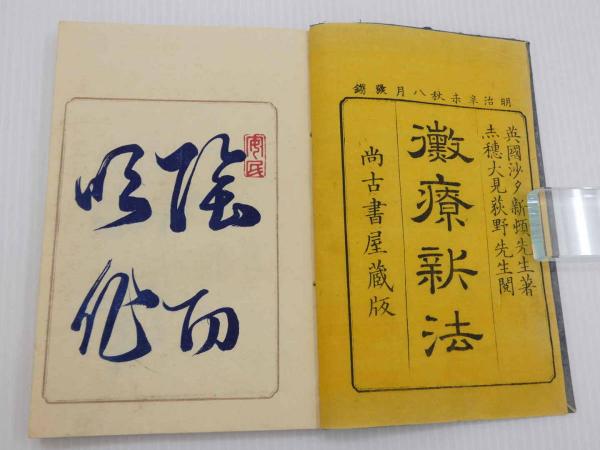 明治辛未秋八月発鐫
英國沙夕新頓先生著
赤穗大見荻野先生閲
黴療新法
尚古書屋蔵版
陰
而